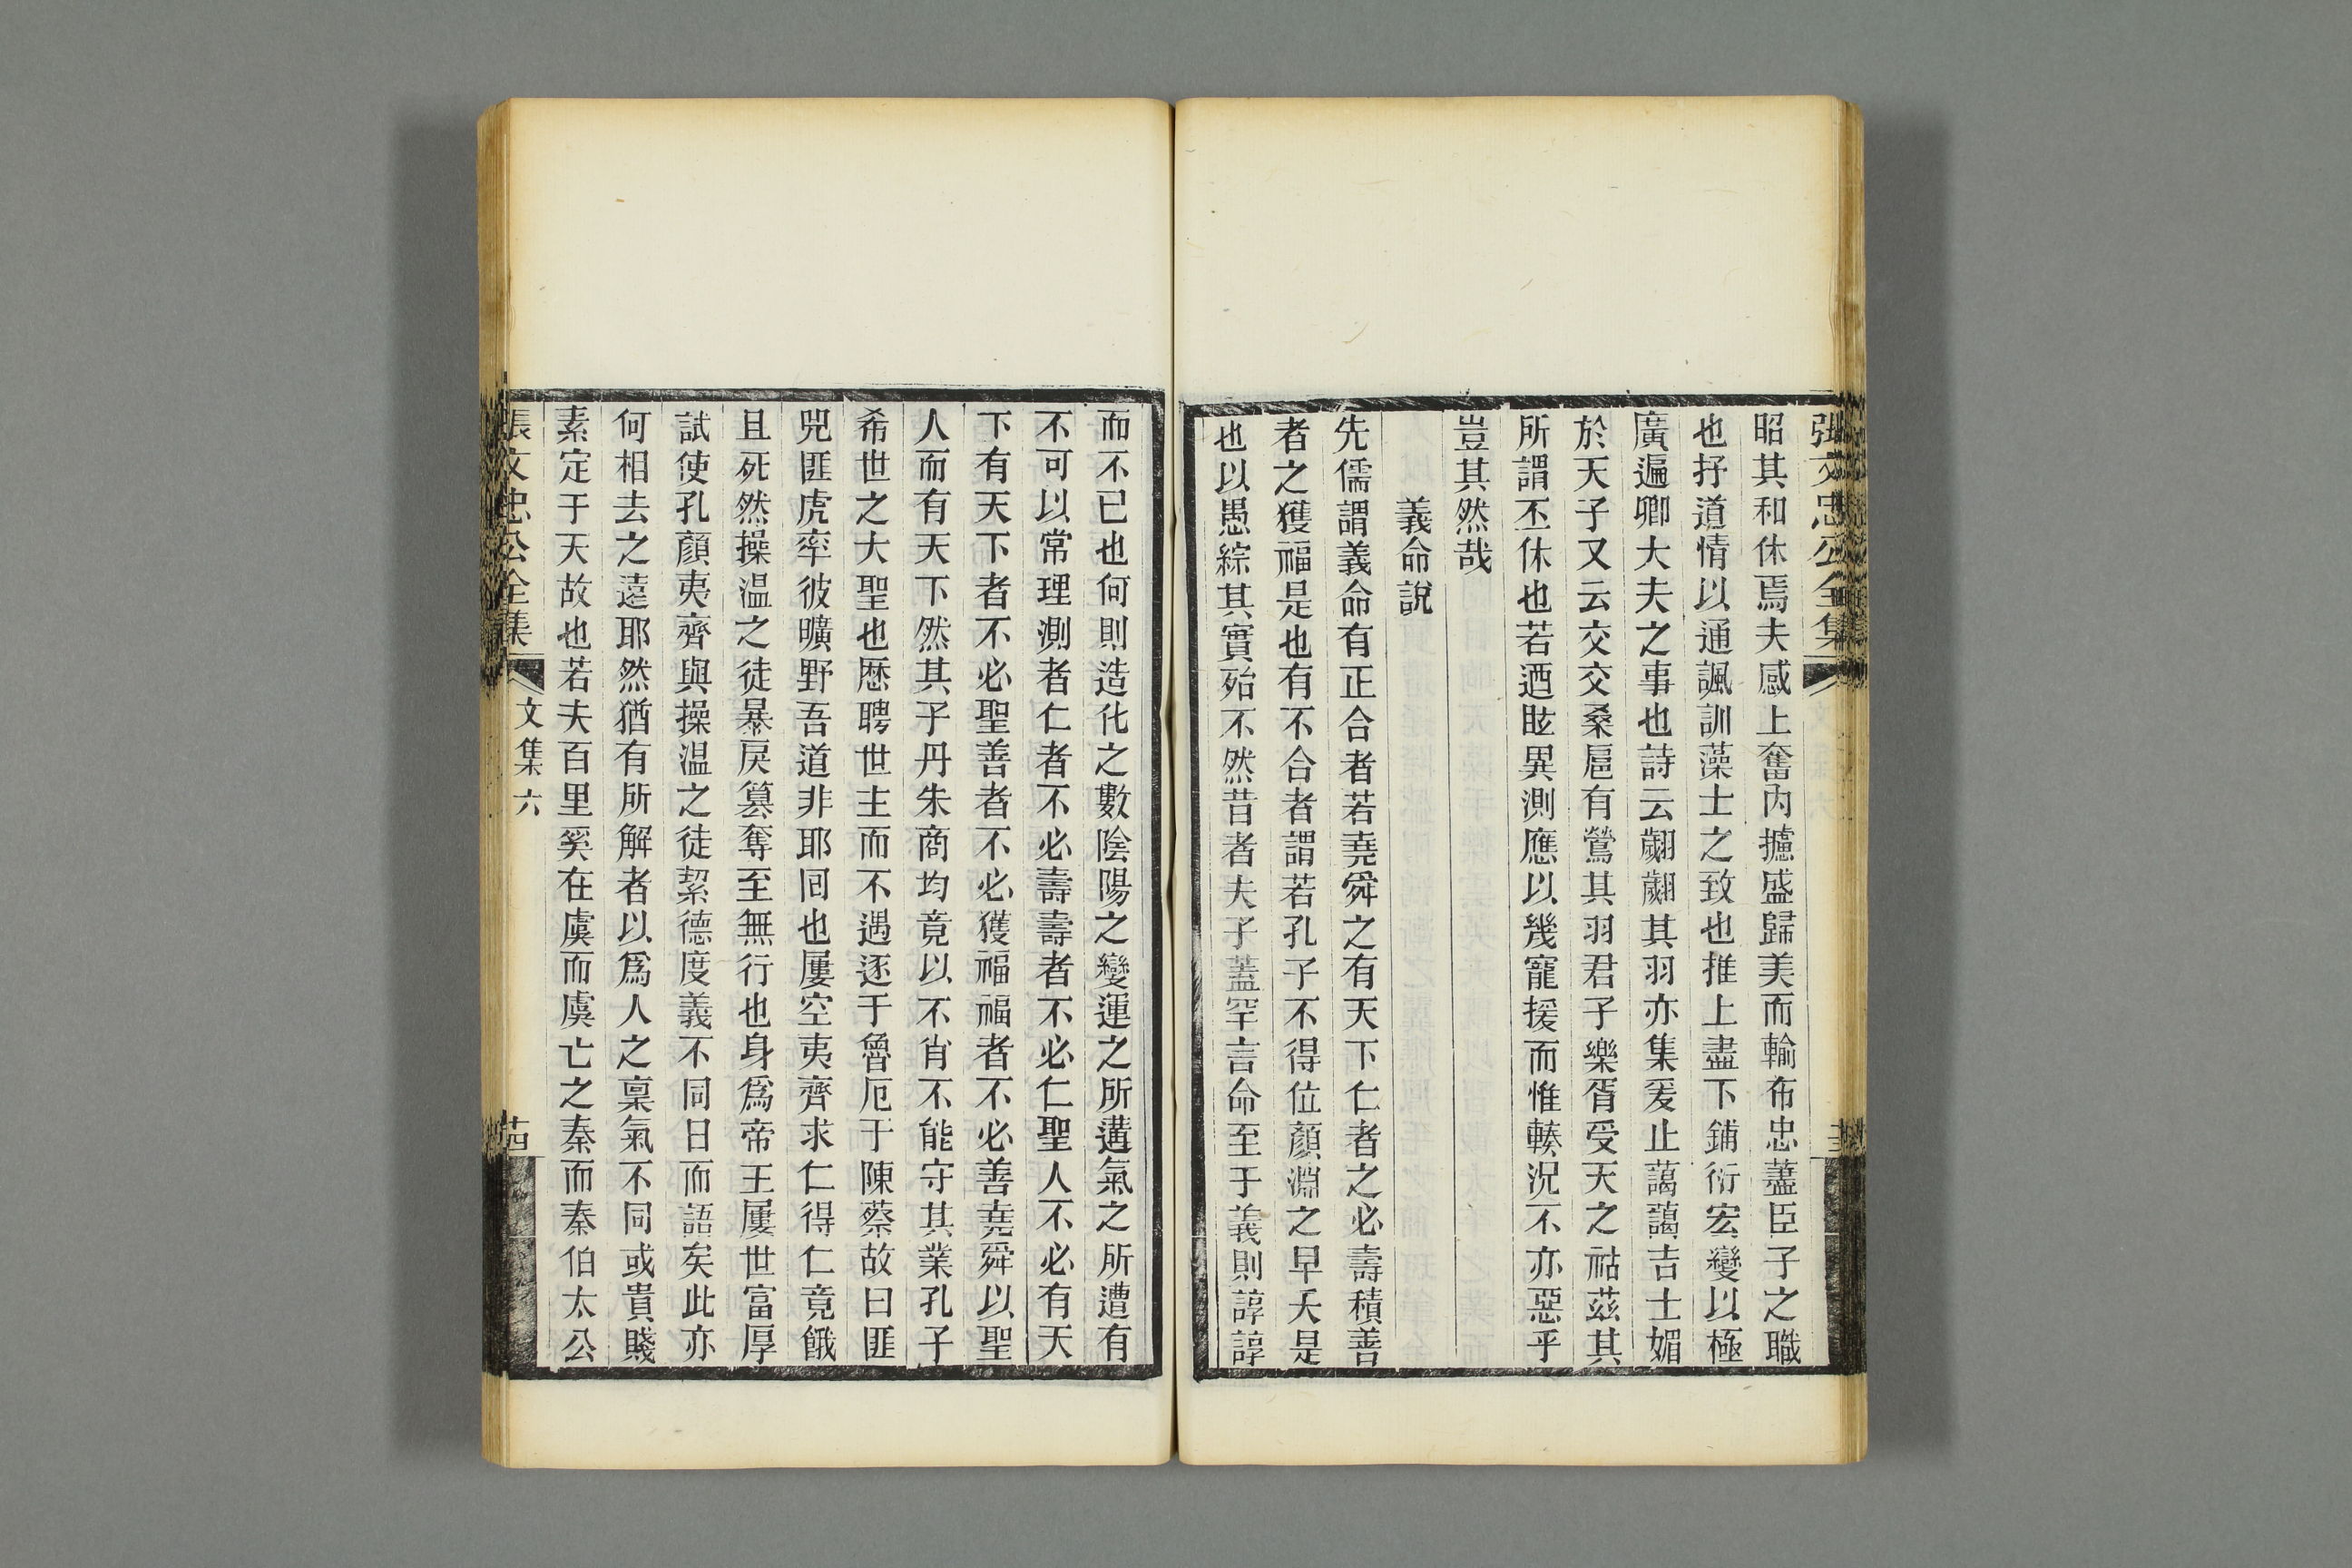 張文忠公全集
昭其和休焉夫感上奮內攄盛歸美而輸布忠藎臣子之職
也抒道情以通諷訓藻士之致也推上盡下鋪衍宏變以極
廣遍卿大夫之事也詩云翽翽其羽亦集爰止藹藹吉士媚
於天子又云交交桑扈有鶯其羽君子樂胥受天之祜茲其
所謂丕休也若迺眩異測應以幾寵援而惟輳況不亦惡乎
豈其然哉
義命說
先儒謂義命有正合者若堯舜之有天下仁者之必壽積善
者之獲福是也有不合者謂若孔子不得位顏淵之早夭是
也以愚綜其實殆不然昔者夫子蓋罕言命至于義則諄諄
而不已也何則造化之數陰陽之變運之所遘氣之所遭有
不可以常理測者仁者不必壽壽者不必仁聖人不必有天
下有天下者不必聖善者不必獲福福者不必善堯舜以聖
人而有天下然其子丹朱商均竟以不肖不能守其業孔子
希世之大聖也歷聘世主而不遇逐于魯厄于陳蔡故曰匪
兕匪虎率彼曠野吾道非耶回也屢空夷齊求仁得仁竟餓
且死然操溫之徒暴戾篡奪至無行也身爲帝王屢世富厚
試使孔顏夷齊與操溫之徒絜德度義不同日而語矣此亦
何相去之遠耶然猶有所解者以爲人之稟氣不同或貴賤
素定于天故也若夫百里奚在虞而虞亡之秦而秦伯太公
張文忠公全集 文集六 十四